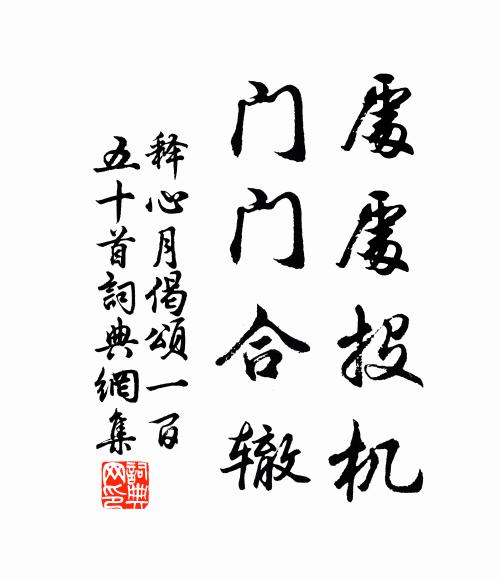 處處投机
门门合辙
释心月偈頌一百
五十首詞典網集
詞典
网印